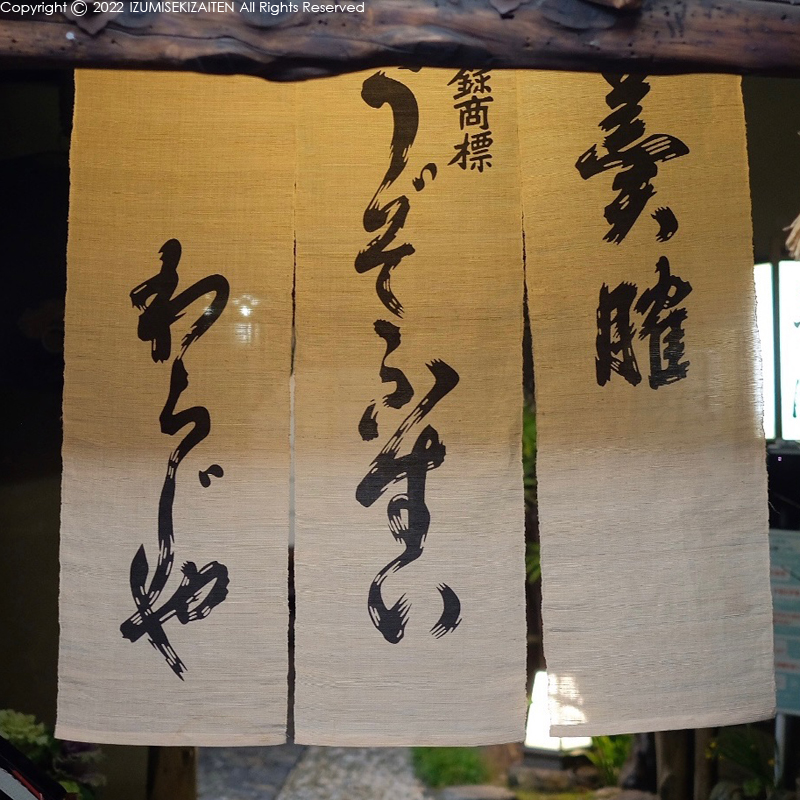 Copyright © 2022 IZUMISEKIZAITEN All Rights Reserved
羹臛
録商標
うぞふすい
わらじや